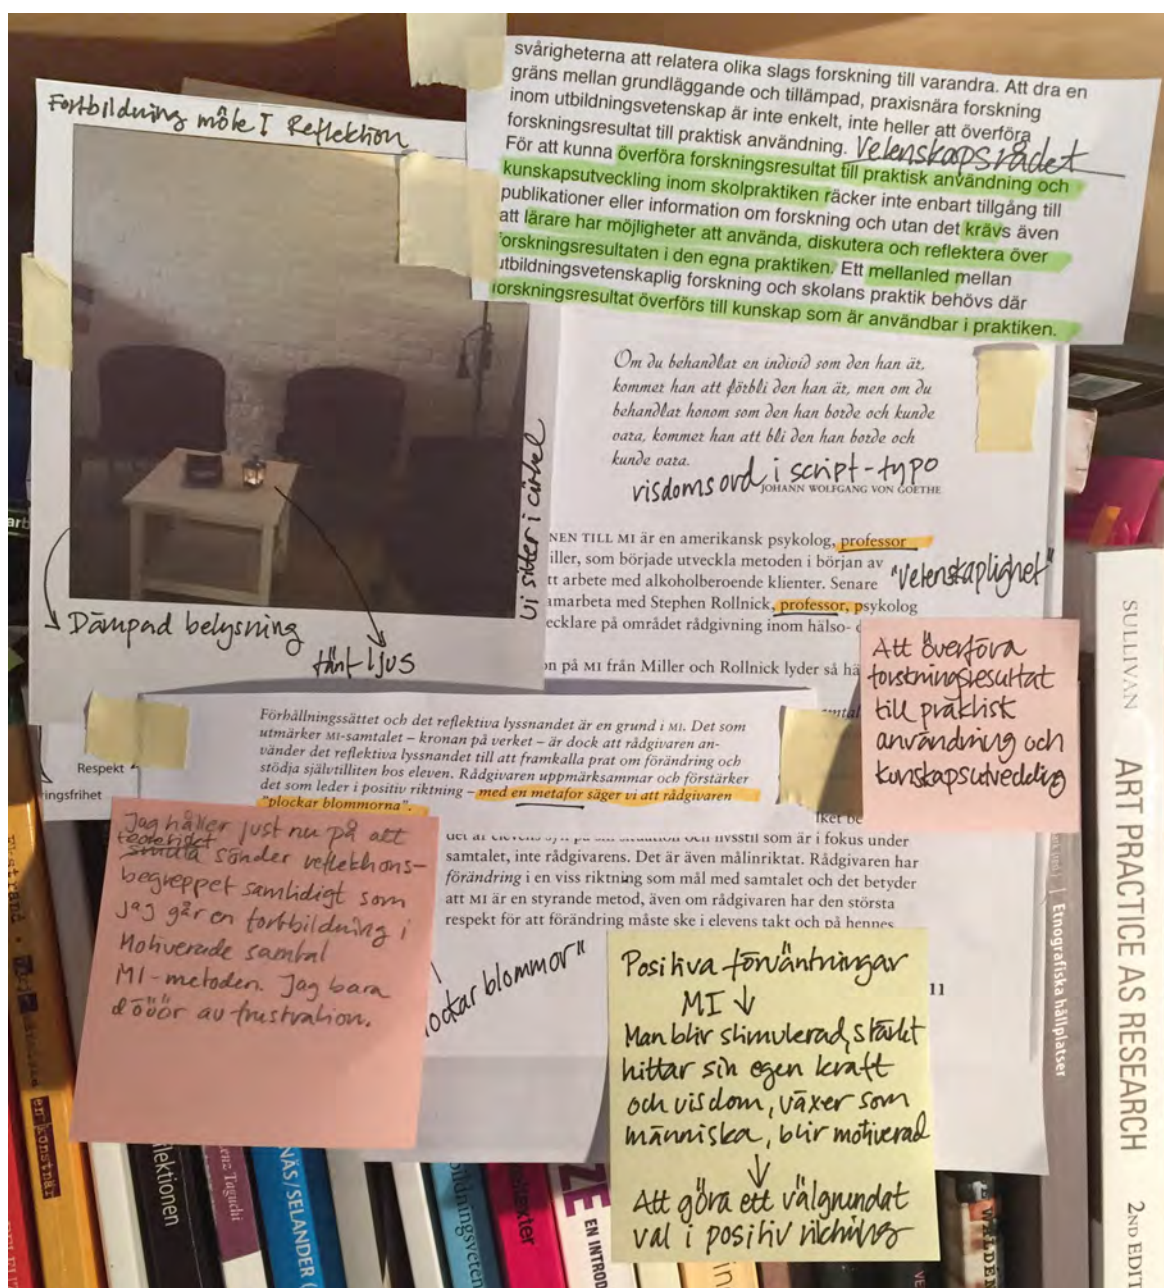 svårigheterna att relatera olika slags forskning till varandra. Att dra en
gräns mellan grundläggande och tillämpad, praxisnära forskning
inom utbildningsvetenskap är inte enkelt, inte heller att överföra
forskningsresultat till praktisk användning. Vetenskapsrådet
För att kunna överföra forskningsresultat till praktisk användning och
kunskapsutveckling inom skolpraktiken räcker inte enbart tillgång till
publikationer eller information om forskning och utan det krävs även
att lärare har möjligheter att använda, diskutera och reflektera över
forskningsresultaten i den egna praktiken. Ett mellanled mellan
utbildningsvetenskaplig forskning och skolans praktik behövs där
forskningsresultat överförs till kunskap som är användbar i praktiken.
Fortbildning möte I Reflektion
Vi sitter i cirkel
Dämpad belysning
tänt ljus
Om du behandlar en individ som den han är,
kommer han att förbli den han är, men om du
behandlar honom som den han borde och kunde
vara, kommer han att bli den han borde och
kunde vara.
visdomsord i script-typo
JOHANN WOLFGANG VON GOETHE
NEN TILL MI är en amerikansk psykolog, professor
iller, som började utveckla metoden i början av
tt arbete med alkoholberoende klienter. Senare
"Vetenskaplighet"
amarbeta med Stephen Rollnick, professor, psykolog
ecklare på området rådgivning inom hälso-
on på MI från Miller och Rollnick lyder så hä
Att överföra
forskningsresultat
till praktisk
användning och
kunskapsutveckling
Förhållningssättet och det reflektiva lyssnandet är en grund i MI. Det som
utmärker MI-samtalet – kronan på verket – är dock att rådgivaren an-
vänder det reflektiva lyssnandet till att framkalla prat om förändring och
stödja självtilliten hos eleven. Rådgivaren uppmärksammar och förstärker
det som leder i positiv riktning – med en metafor säger vi att rådgivaren
"plockar blommorna".
Respekt
ringsfrihet
lket be
livsstil som är i fokus under
samtalet, inte rådgivarens. Det är även målinriktat. Rådgivaren har
förändring i en viss riktning som mål med samtalet och det betyder
att MI är en styrande metod, även om rådgivaren har den största
respekt för att förändring måste ske i elevens takt och på hennes
11
Jag håller just nu på att
smula sönder reflektions-
begreppet samtidigt som
jag går en fortbildning i
Motiverade samtal
MI-metoden. Jag bara
döööör av frustration.
lockar blommor"
Positiva förväntningar
MI ↓
Man blir stimulerad, stärkt
hittar sin egen kraft
och visdom, växer som
människa, blir motiverad
↓
Att göra ett välgrundat
val i positiv riktning
SULLIVAN ART PRACTICE AS RESEARCH 2ND EDIT
Etnografiska hållplatser
en konstnär
lektionen
enz Taguchi
NÄS/SELANDER (
bildningsveten
texter
ZE EN INTROD
in
WALDE